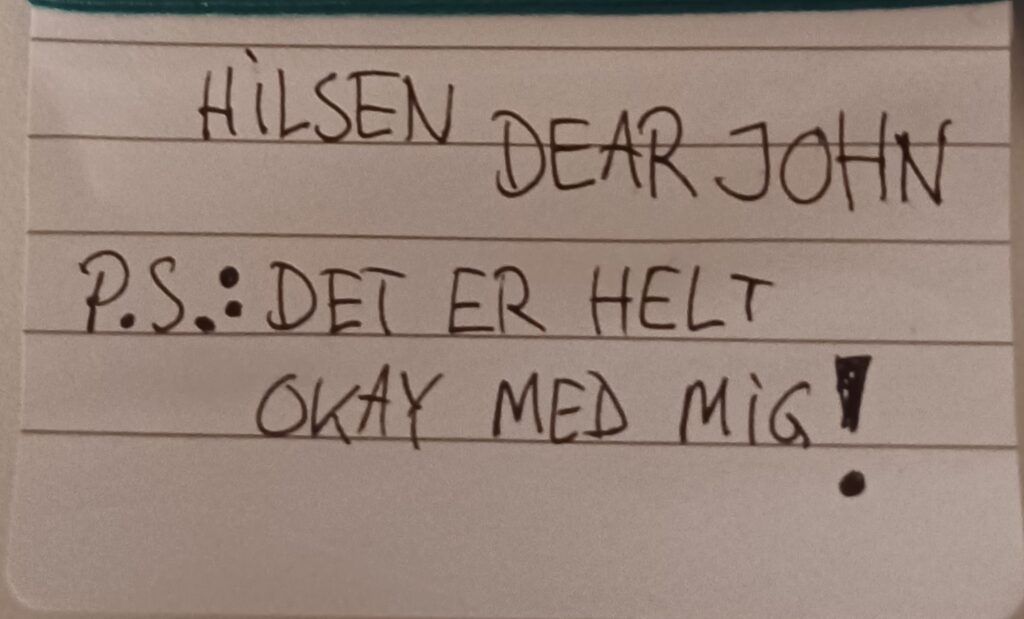 HILSEN DEAR JOHN
P.S.: DET ER HELT
OKAY MED MIG!